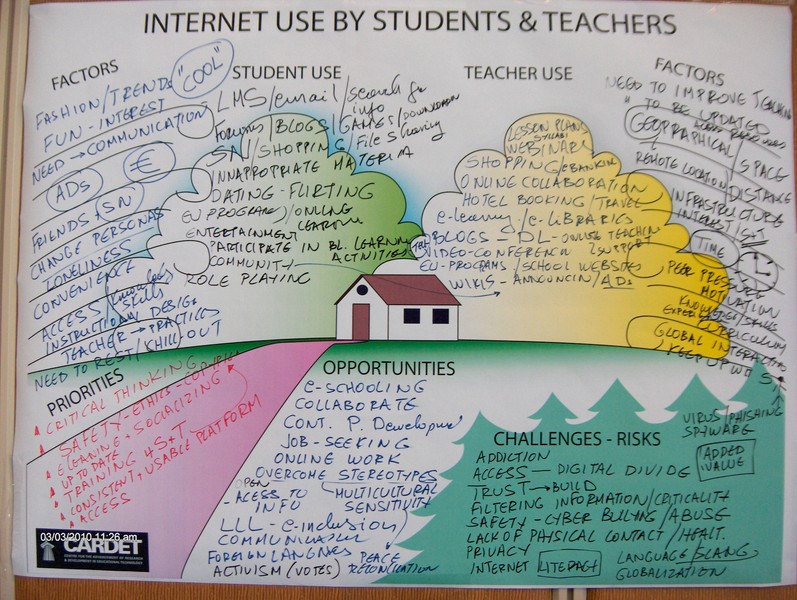 INTERNET USE BY STUDENTS & TEACHERS
FACTORS
FASHION/TRENDS
"COOL"
FUN - INTEREST
NEED → COMMUNICATION
ADS
€
FRIENDS + SN
CHANGE PERSONAS
LONELINESS
CONVENIENCE
ACCESS/Knowledge
Skills
INSTRUCTIONAL DESIGN
TEACHER → PRACTICES
NEED TO REST/CHILL OUT
STUDENT USE
LMS/email/search for
info
Forums/BLOGS/GAMES/DOWNLOAD
SN/SHOPPING/File Sharing
INNAPROPRIATE MATERIA
DATING - FLIRTING
EU PROGRAMS/ONLINE
LEARNING
ENTERTAINMENT
PARTICIPATE IN BL. LEARNING
ACTIVITIES
COMMUNITY
ROLE PLAYING
TEACHER USE
LESSON PLANS
SYLLABI
WEBINARS
SHOPPING/eBANKING
ONLINE COLLABORATION
HOTEL BOOKING/TRAVEL
e-learning/e-LIBRARIES
BLOGS - DL - ONLINE TEACHING
VIDEO-CONFERENCE SUPPORT
EU-PROGRAMS/SCHOOL WEBSITES
WIKIS - ANNOUNCIN/ADs
FACTORS
NEED TO IMPROVE TEACHING
" TO BE UPDATED
GEOGRAPHICAL/SPACE
REMOTE LOCATION DISTANCE
INFRASTRUCTURE
INTEREST
TIME
PEER PRESSURE
MOTIVATION
KNOWLEDGE/SKILLS
EXPERIENCE
CURRICULUM
GLOBAL INTERACTION
KEEP UP W
PRIORITIES
CRITICAL THINKING
SAFETY-ETHICS-
ELEARNING + SOCIALIZING
UP TO DATE
TRAINING 4 S+T
CONSISTENT, USABLE PLATFORM
ACCESS
OPPORTUNITIES
e-SCHOOLING
COLLABORATE
CONT. P. Development
JOB-SEEKING
ONLINE WORK
OVERCOME STEREOTYPES
OPEN
- ACCESS TO
INFO
MULTICULTURAL
SENSITIVITY
LLL - e-inclusion
COMMUNICATION
FOREIGN LANGUAGES
PEACE
RECONCILIATION
ACTIVISM (VOTES)
CHALLENGES - RISKS
VIRUS/PHISHING
SPYWARE
ADDED
VALUE
ADDICTION
ACCESS — DIGITAL DIVIDE
TRUST → BUILD
FILTERING INFORMATION/CRITICALITY
SAFETY - CYBER BULLYING/ABUSE
LACK OF PHYSICAL CONTACT/HEALT.
PRIVACY
INTERNET LITERACY
LANGUAGE/SLANG
GLOBALIZATION
03/03/2010 11:26 am
CARDET